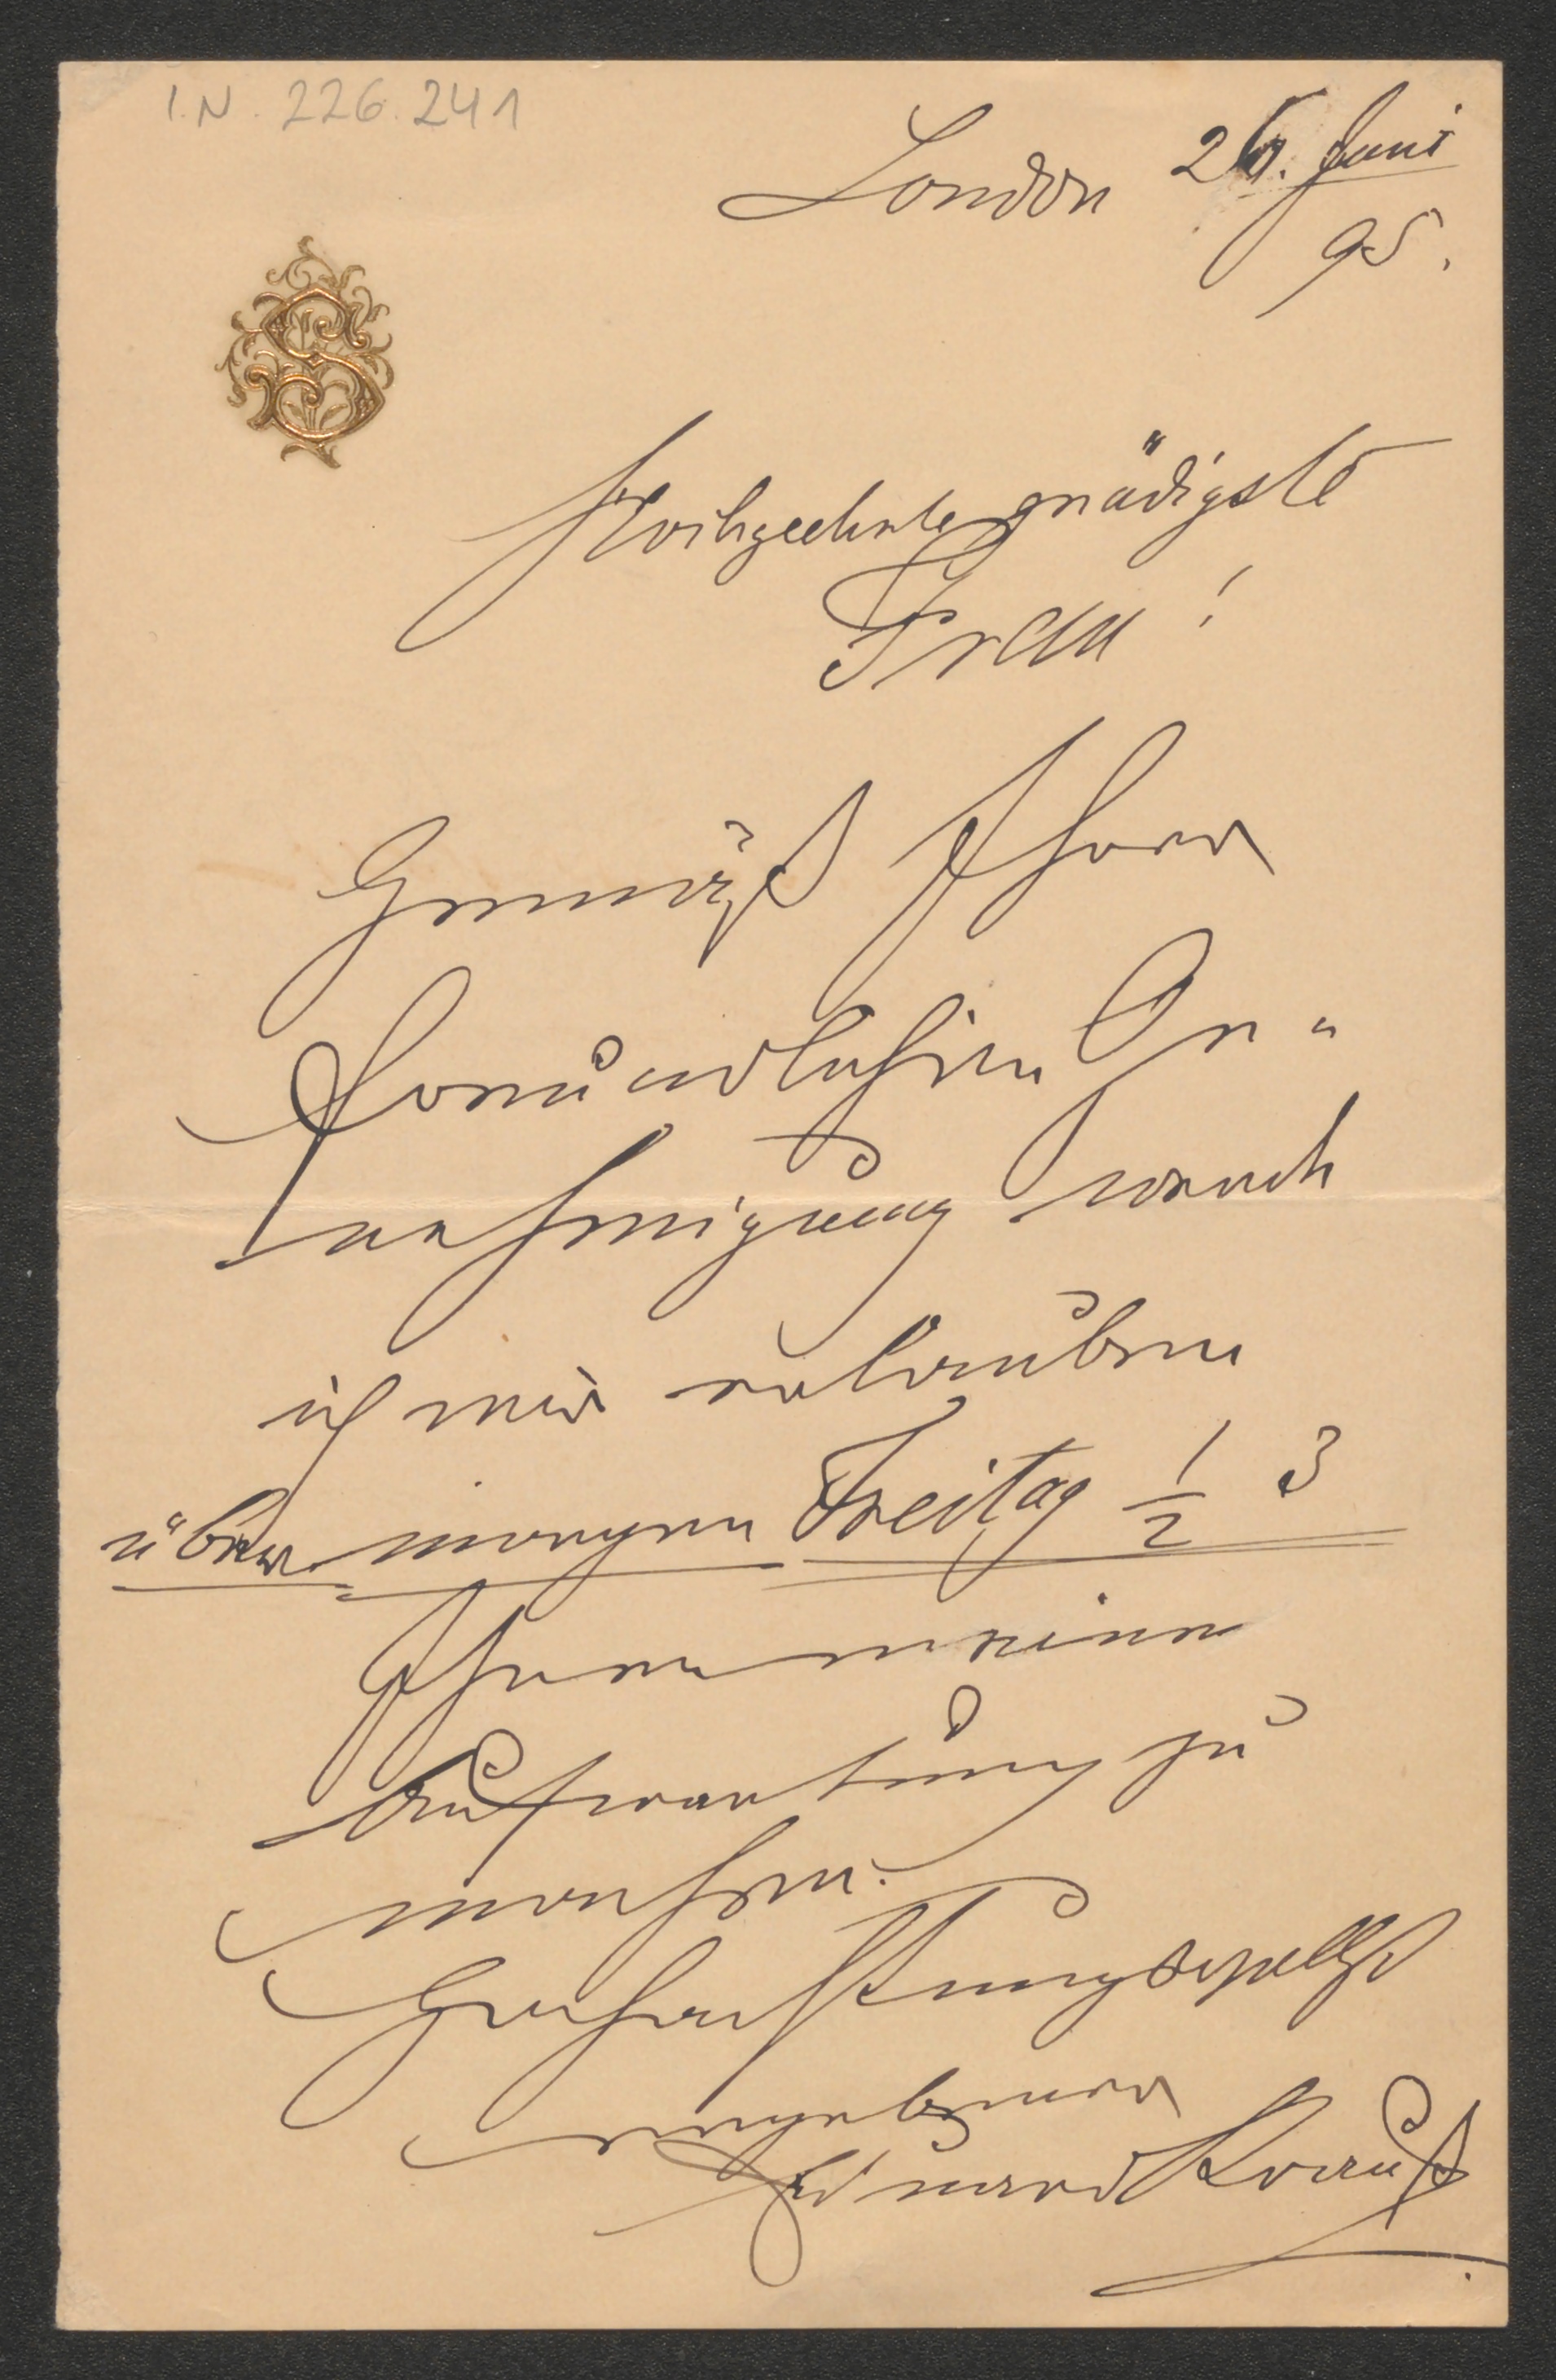 I.N. 226.241
London 26. Juni
95.
S
Hochgeehrte gnädigste
Frau!
Gemäß Ihrer
freundlichen Ge=
nehmigung werde
ich mir erlauben
über morgen Freitag ½ 3
Ihnen meine
Aufwartung zu
machen.
Hochachtungsvollst
ergebener
Eduard Strauß